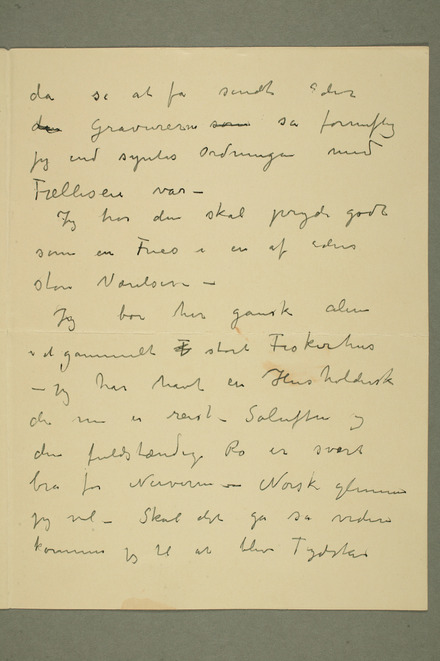 da se at få sendt eder
Gravurerne så fornuftig
jeg end syntes Ordningen med
Fællesen var –
Jeg tror den skal pryde godt
som en Fries i en af eders
store Værelser –
Jeg bor her gansk alene
i et gammelt stort Fiskerhus
– jeg har havt en Husholderske
der nu er reist – Soluften og
den fuldstændige Ro er svært
bra for Nerverne – Norsk glemmer
jeg vel – Skal det gå så videre
kommer jeg til at blive Tydsker